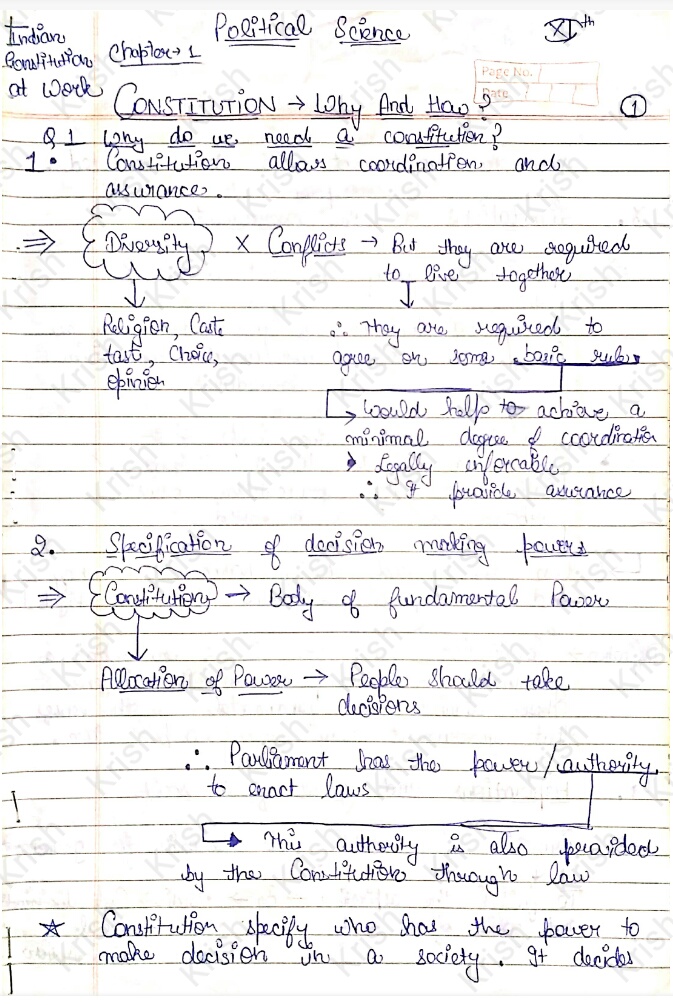 Political Science
XIth
Indian
Constitution
at Work
Chapter → 1
Page No.
Date
CONSTITUTION → Why And How?
1
Q 1 Why do we need a constitution?
1. Constitution allows coordination and
assurance.
⇒ Diversity X Conflicts → But they are required
to live together
Religion, Caste
tast, Choice,
opinion
∴ They are required to
agree on some basic rules
→ Would help to achieve a
minimal degree of coordination
Legally inforcable
∴ It provide assurance
2. Specification of decision making powers
⇒ Constitution → Body of fundamental Power
Allocation of Power → People should take
decisions
∴ Parliament has the power/authority
to enact laws
→ This authority is also provided
by the Constitution through law
☆ Constitution specify who has the power to
make decision in a society. It decides
Krish